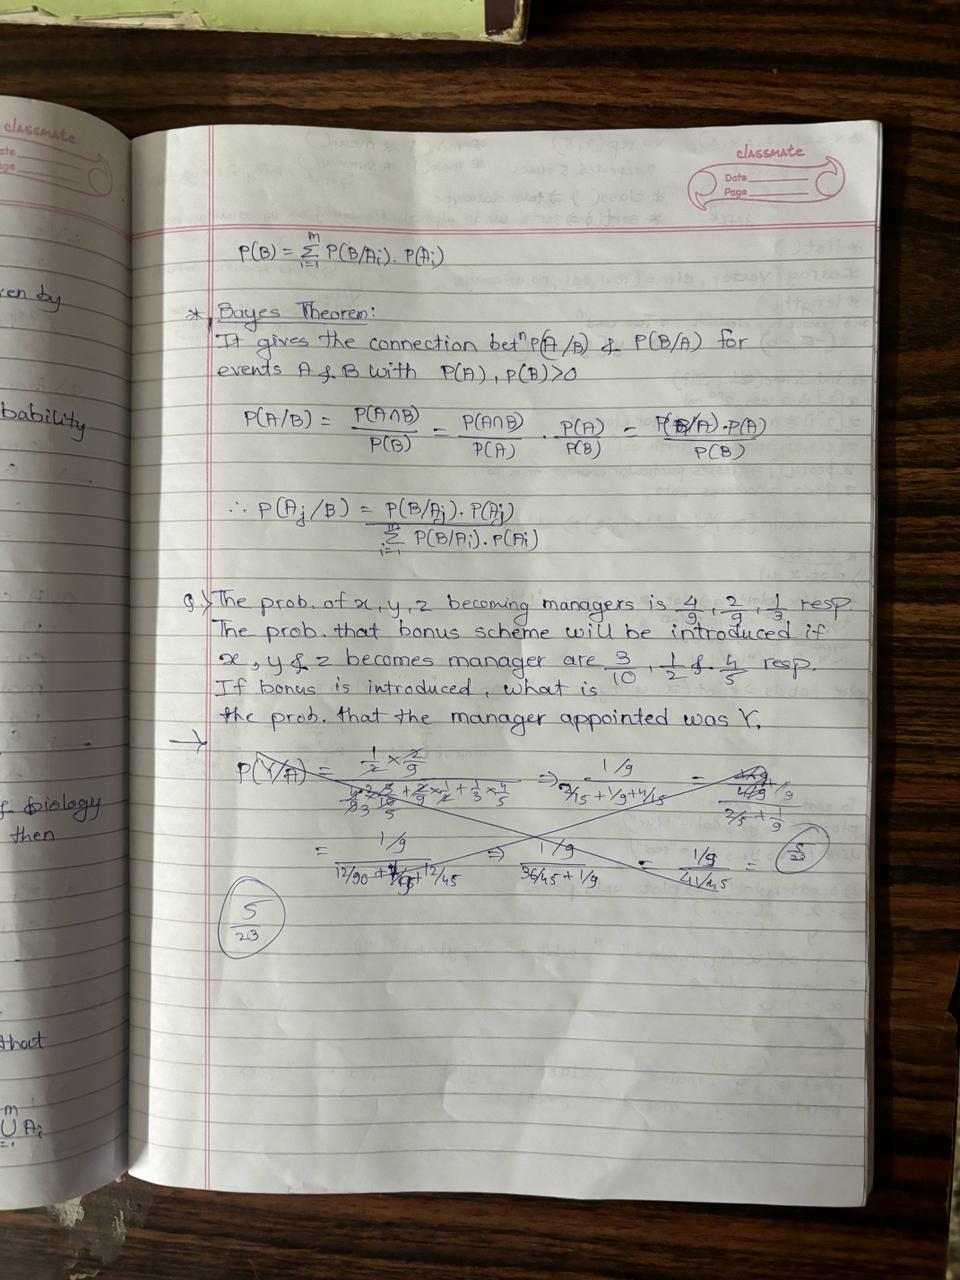 classmate
Date
Page
P(B) = m∑i=1 P(B/Ai). P(Ai)
* Bayes Theorem:
It gives the connection betⁿ P(A/B) & P(B/A) for
events A & B with P(A), P(B)>0
P(A/B) = P(A∩B)/P(B) = P(A∩B)/P(A) . P(A)/P(B) = P(B/A).P(A)/P(B)
∴ P(Aj/B) = P(B/Aj). P(Aj) / m∑i=1 P(B/Ai). P(Ai)
Q.> The prob. of x, y, z becoming managers is 4/9, 2/9, 1/3 resp.
The prob. that bonus scheme will be introduced if
x, y & z becomes manager are 3/10, 1/2 & 4/5 resp.
If bonus is introduced, what is
the prob. that the manager appointed was Y.
→
P(Y/A) = 1/2 × 2/9 ⇒ 1/9 / 2/15 + 1/9 + 4/15 = 2/5 + 1/9
= 1/9 ⇒ 1/9 / 36/45 + 1/9 = 1/9 / 41/45 = 5/23
5/23
classmate
ate
age
en by
bability
f. biology
then
that
m∪i=1 Ai